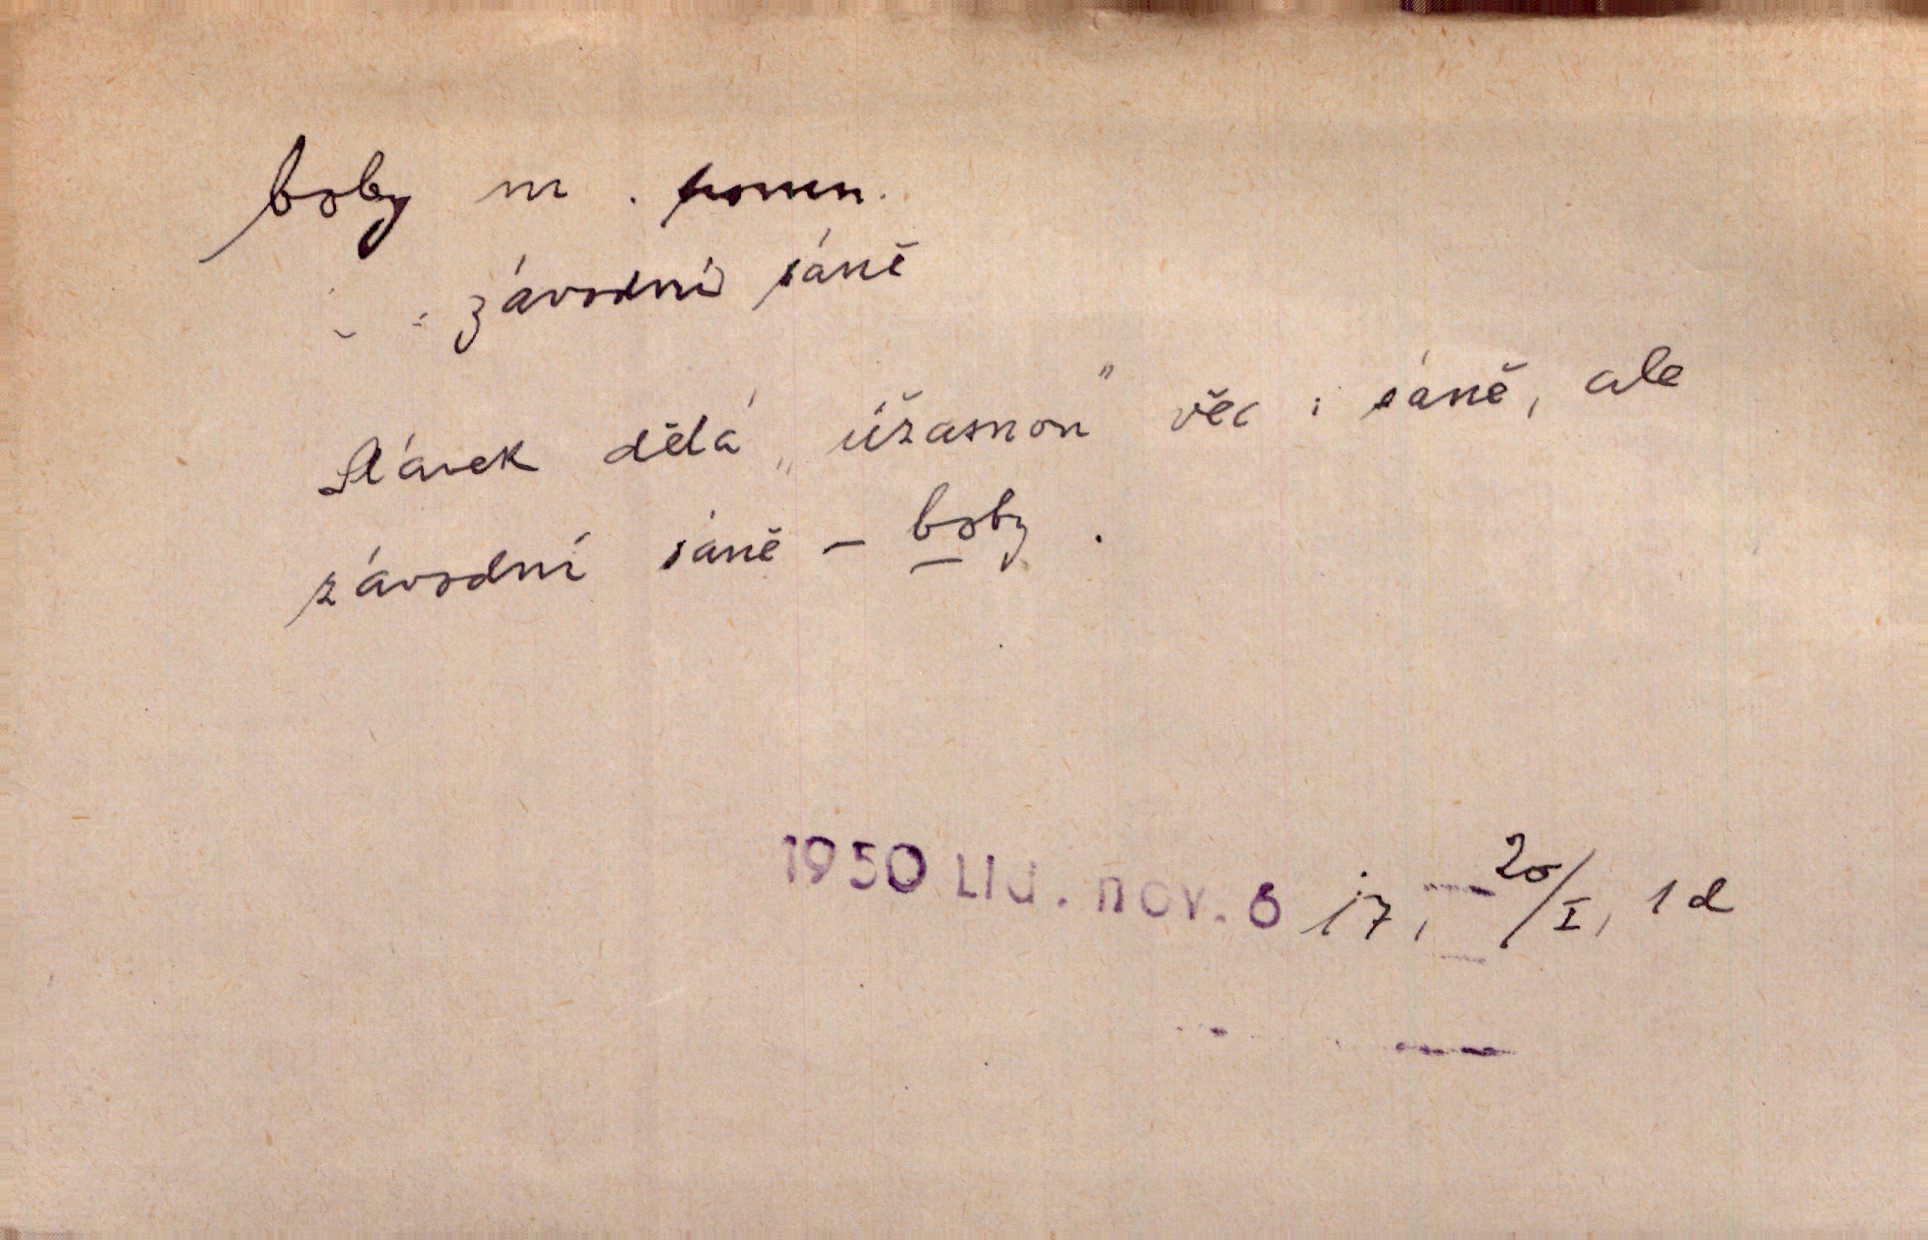 boby m. pomn.
: závodní sáně
Slávek dělá „úžasnou" věc: sáně, ale
závodní sáně – boby.
1950 Lid. nov. 6 17, 20/I, 1d